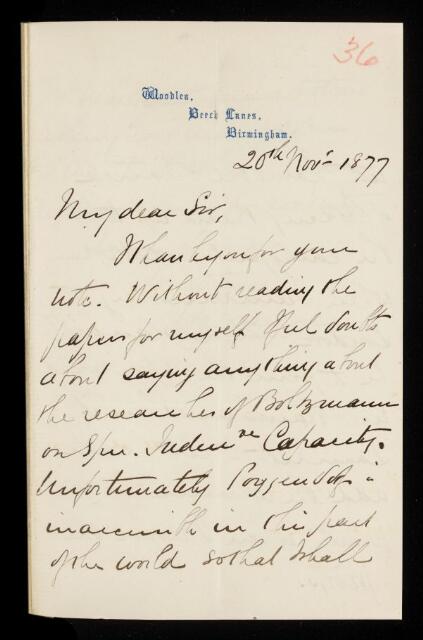 36
Woodlea,
Beech Lanes,
Birmingham.
20th Novr 1877
My dear Sir,
Thank you for your
note. Without reading the
papers for myself I feel doubts
about saying anything about
the researches of Boltzmann
on Spec. Inductve Capacity.
Unfortunately Poggendorf
in this part
of the world so that I shall